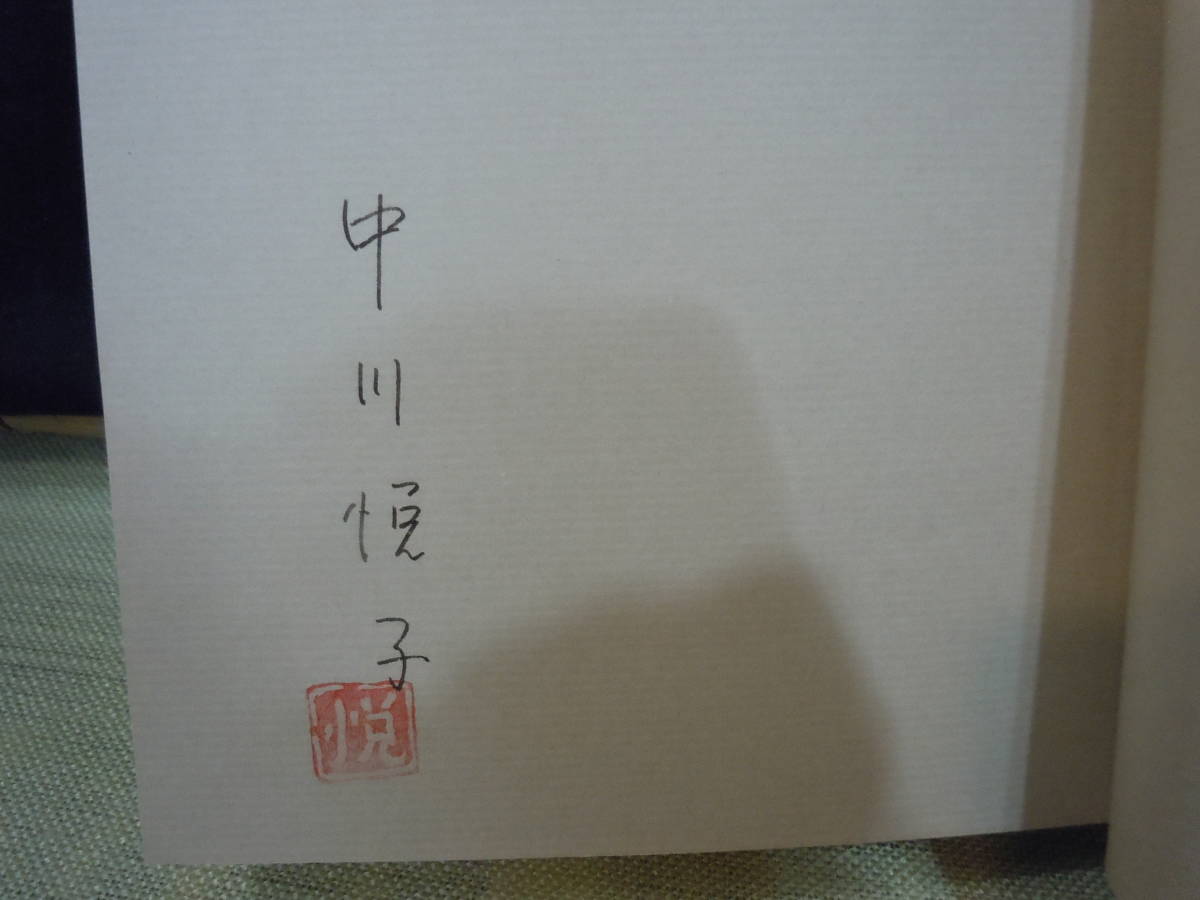 中川悦子
悦